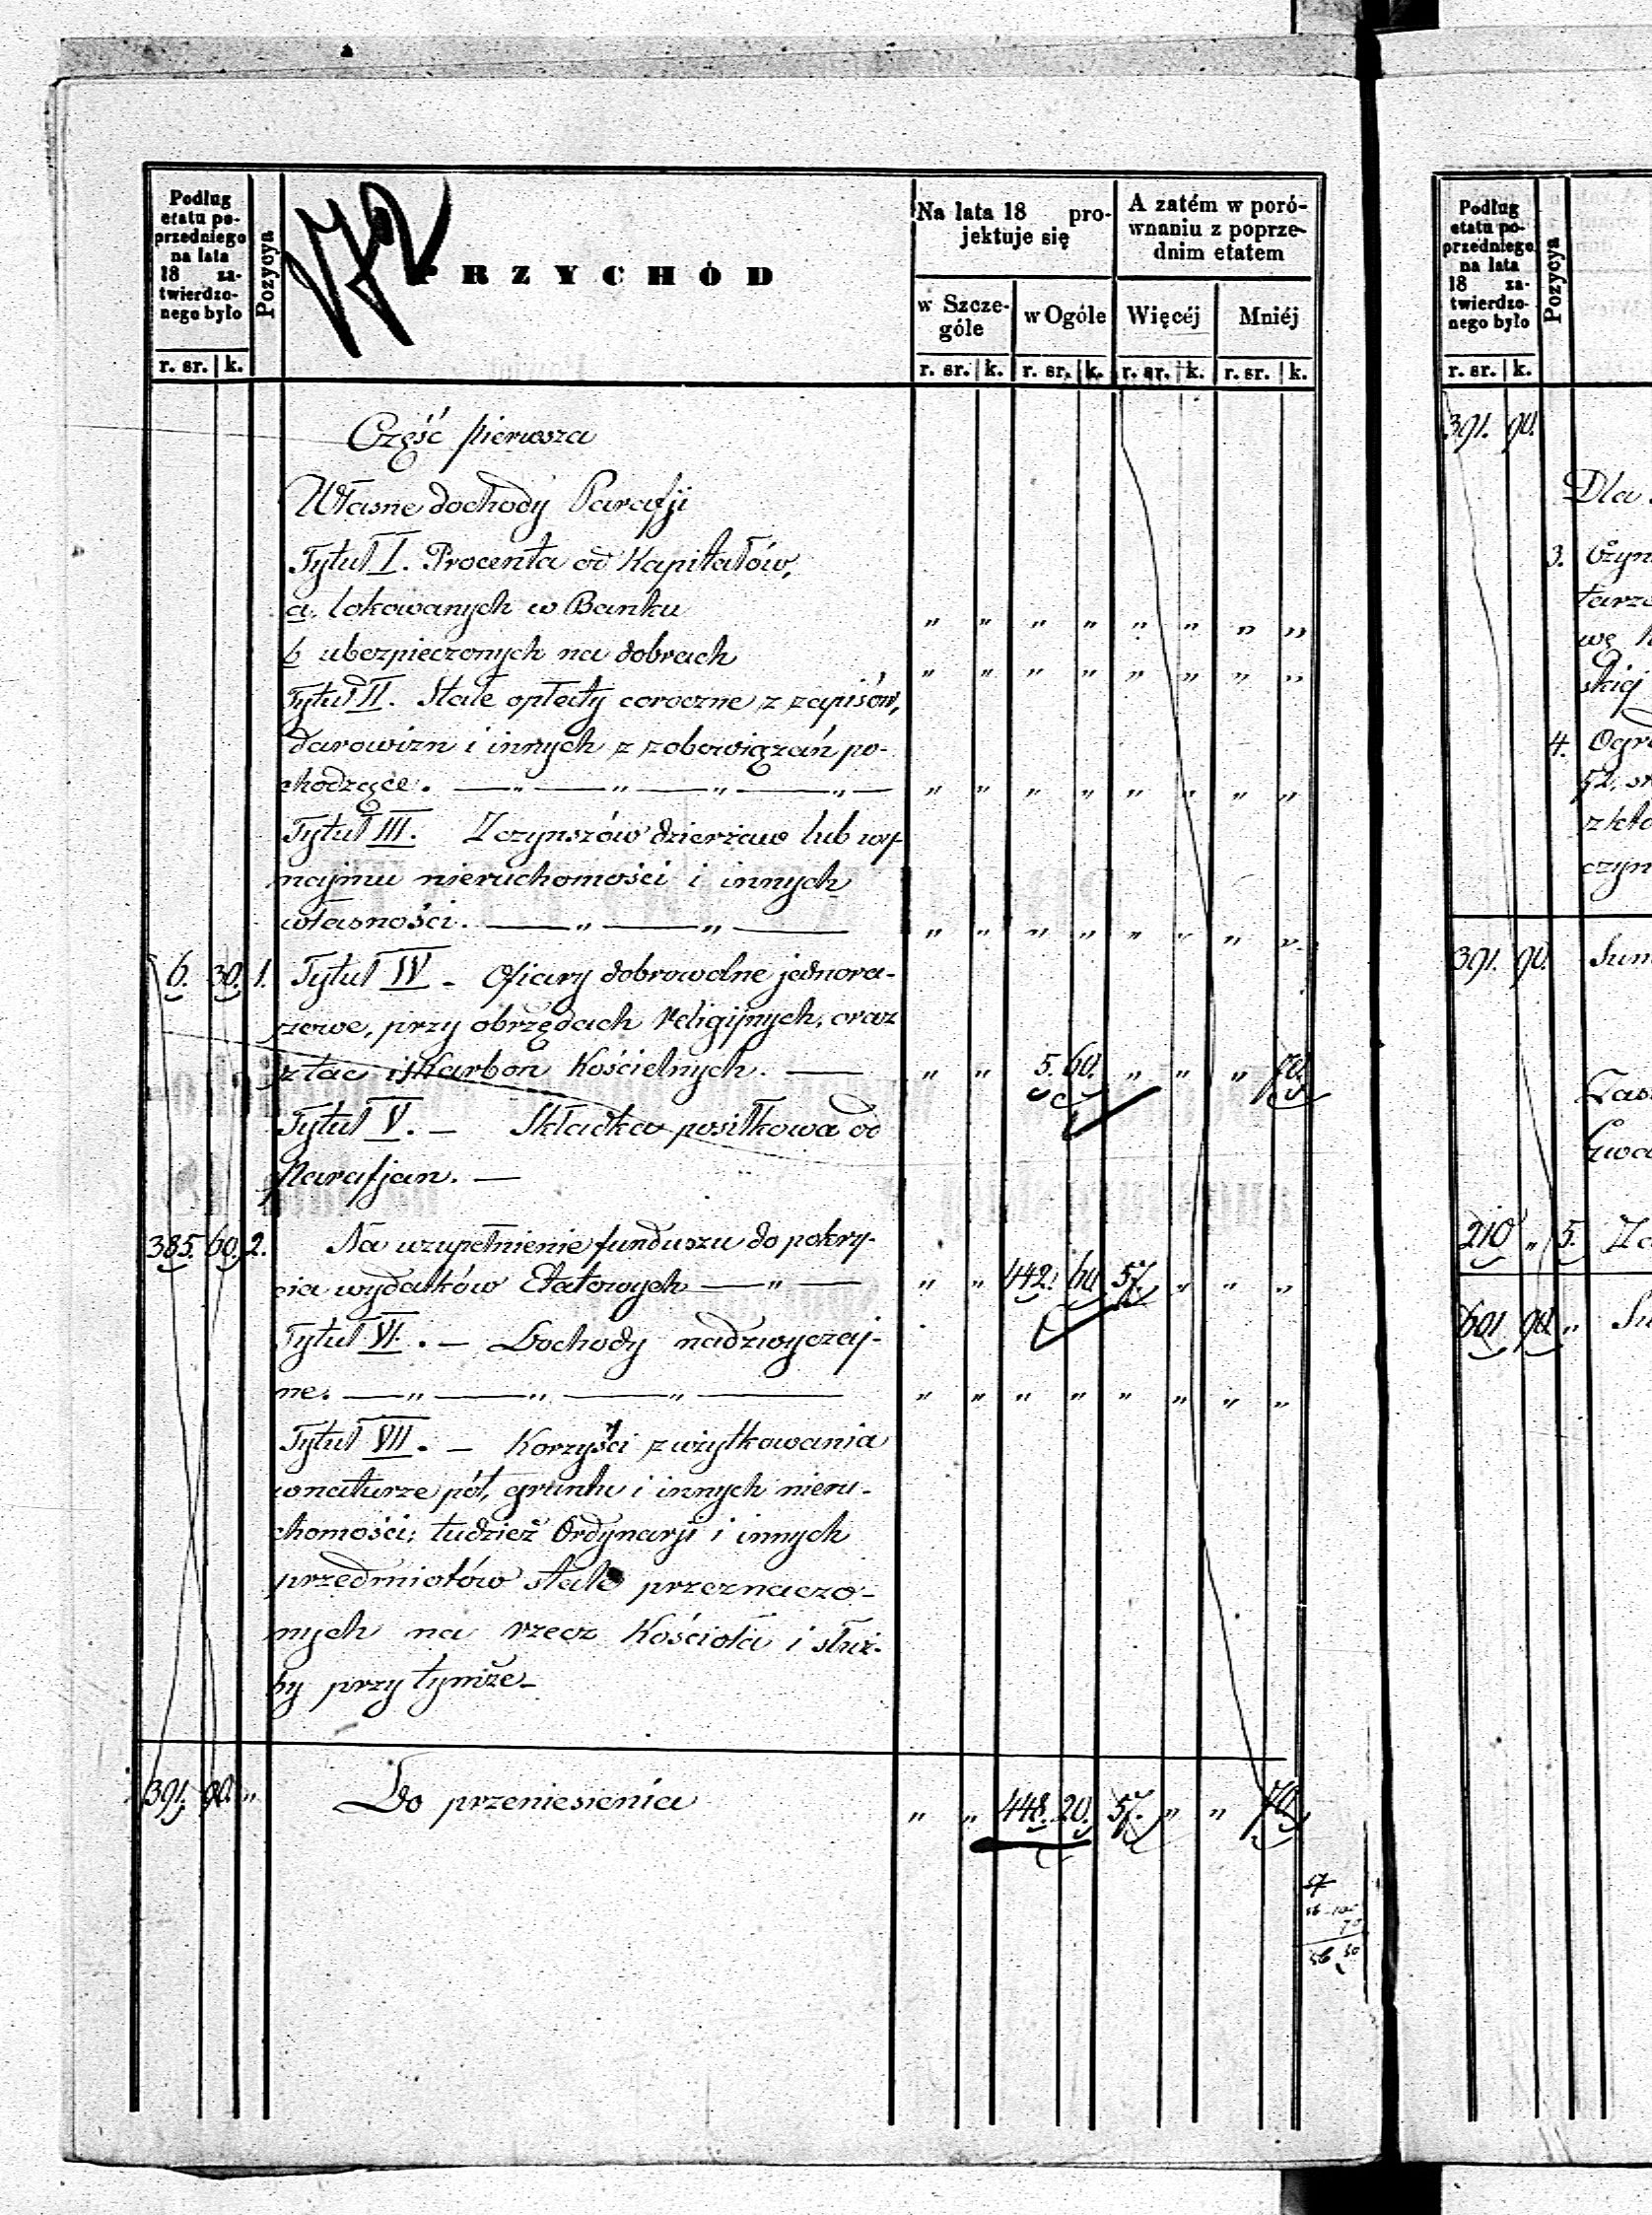 Podług etatu po-przedniego na lata 18 za-twierdzo-nego było
Pozycya
172
PRZYCHÓD
Na lata 18 pro-
jektuje się
A zatém w poró-
wnaniu z poprze-
dnim etatem
w Szcze-
góle
w Ogóle
Więcéj
Mniéj
r. sr. k. r. sr. k. r. sr. k. r. sr. k. r. sr. k.
Część pierwsza
Własne dochody Parafji
Tytuł I. Procenta od Kapitałów,
a. lokowanych w Banku " " " " " " " "
b ubezpieczonych na dobrach " " " " " " " "
Tytuł II. Stałe opłaty coroczne z zapisów,
darowizn i innych z zobowiązań po-
chodzące. — " — " — " — " — " " " " " " " "
Tytuł III. Z czynszów dzierżaw lub wy-
najmu nieruchomości i innych
własności. — " — " — " " " " " " " "
6. 30. 1. Tytuł IV - Ofiary dobrowolne jednora-
zowe, przy obrzędach religijnych, oraz
z tac i skarbon Kościelnych. — " " 5. 60. " " " 70.
Tytuł V. — Składka posiłkowa od
Parafjan. —
385. 60. 2. Na uzupełnienie funduszu do pokry-
cia wydatków Etatowych — " — " " 442. 60. 57. " " "
Tytuł VI. — Dochody nadzwyczaj-
ne. — " — " — " — " " " " " " " "
Tytuł VII. — Korzyści z użytkowania
w naturze pól, gruntu i innych nieru-
chomości; tudzież Ordynarji i innych
przedmiotów stale przeznaczo-
nych na rzecz Kościoła i służ-
by przy tymże -
391. 90. " Do przeniesienia " " 448. 20. 57. " " 70.
57
56 100
70
56 30
Podług etatu po-przedniego na lata 18 za-twierdzo-nego było
Pozycya
r. sr. k.
391. 90.
Dla
3.
4. Ogro
391. 90. Sum
210 " 5. Za
601 90 " Su